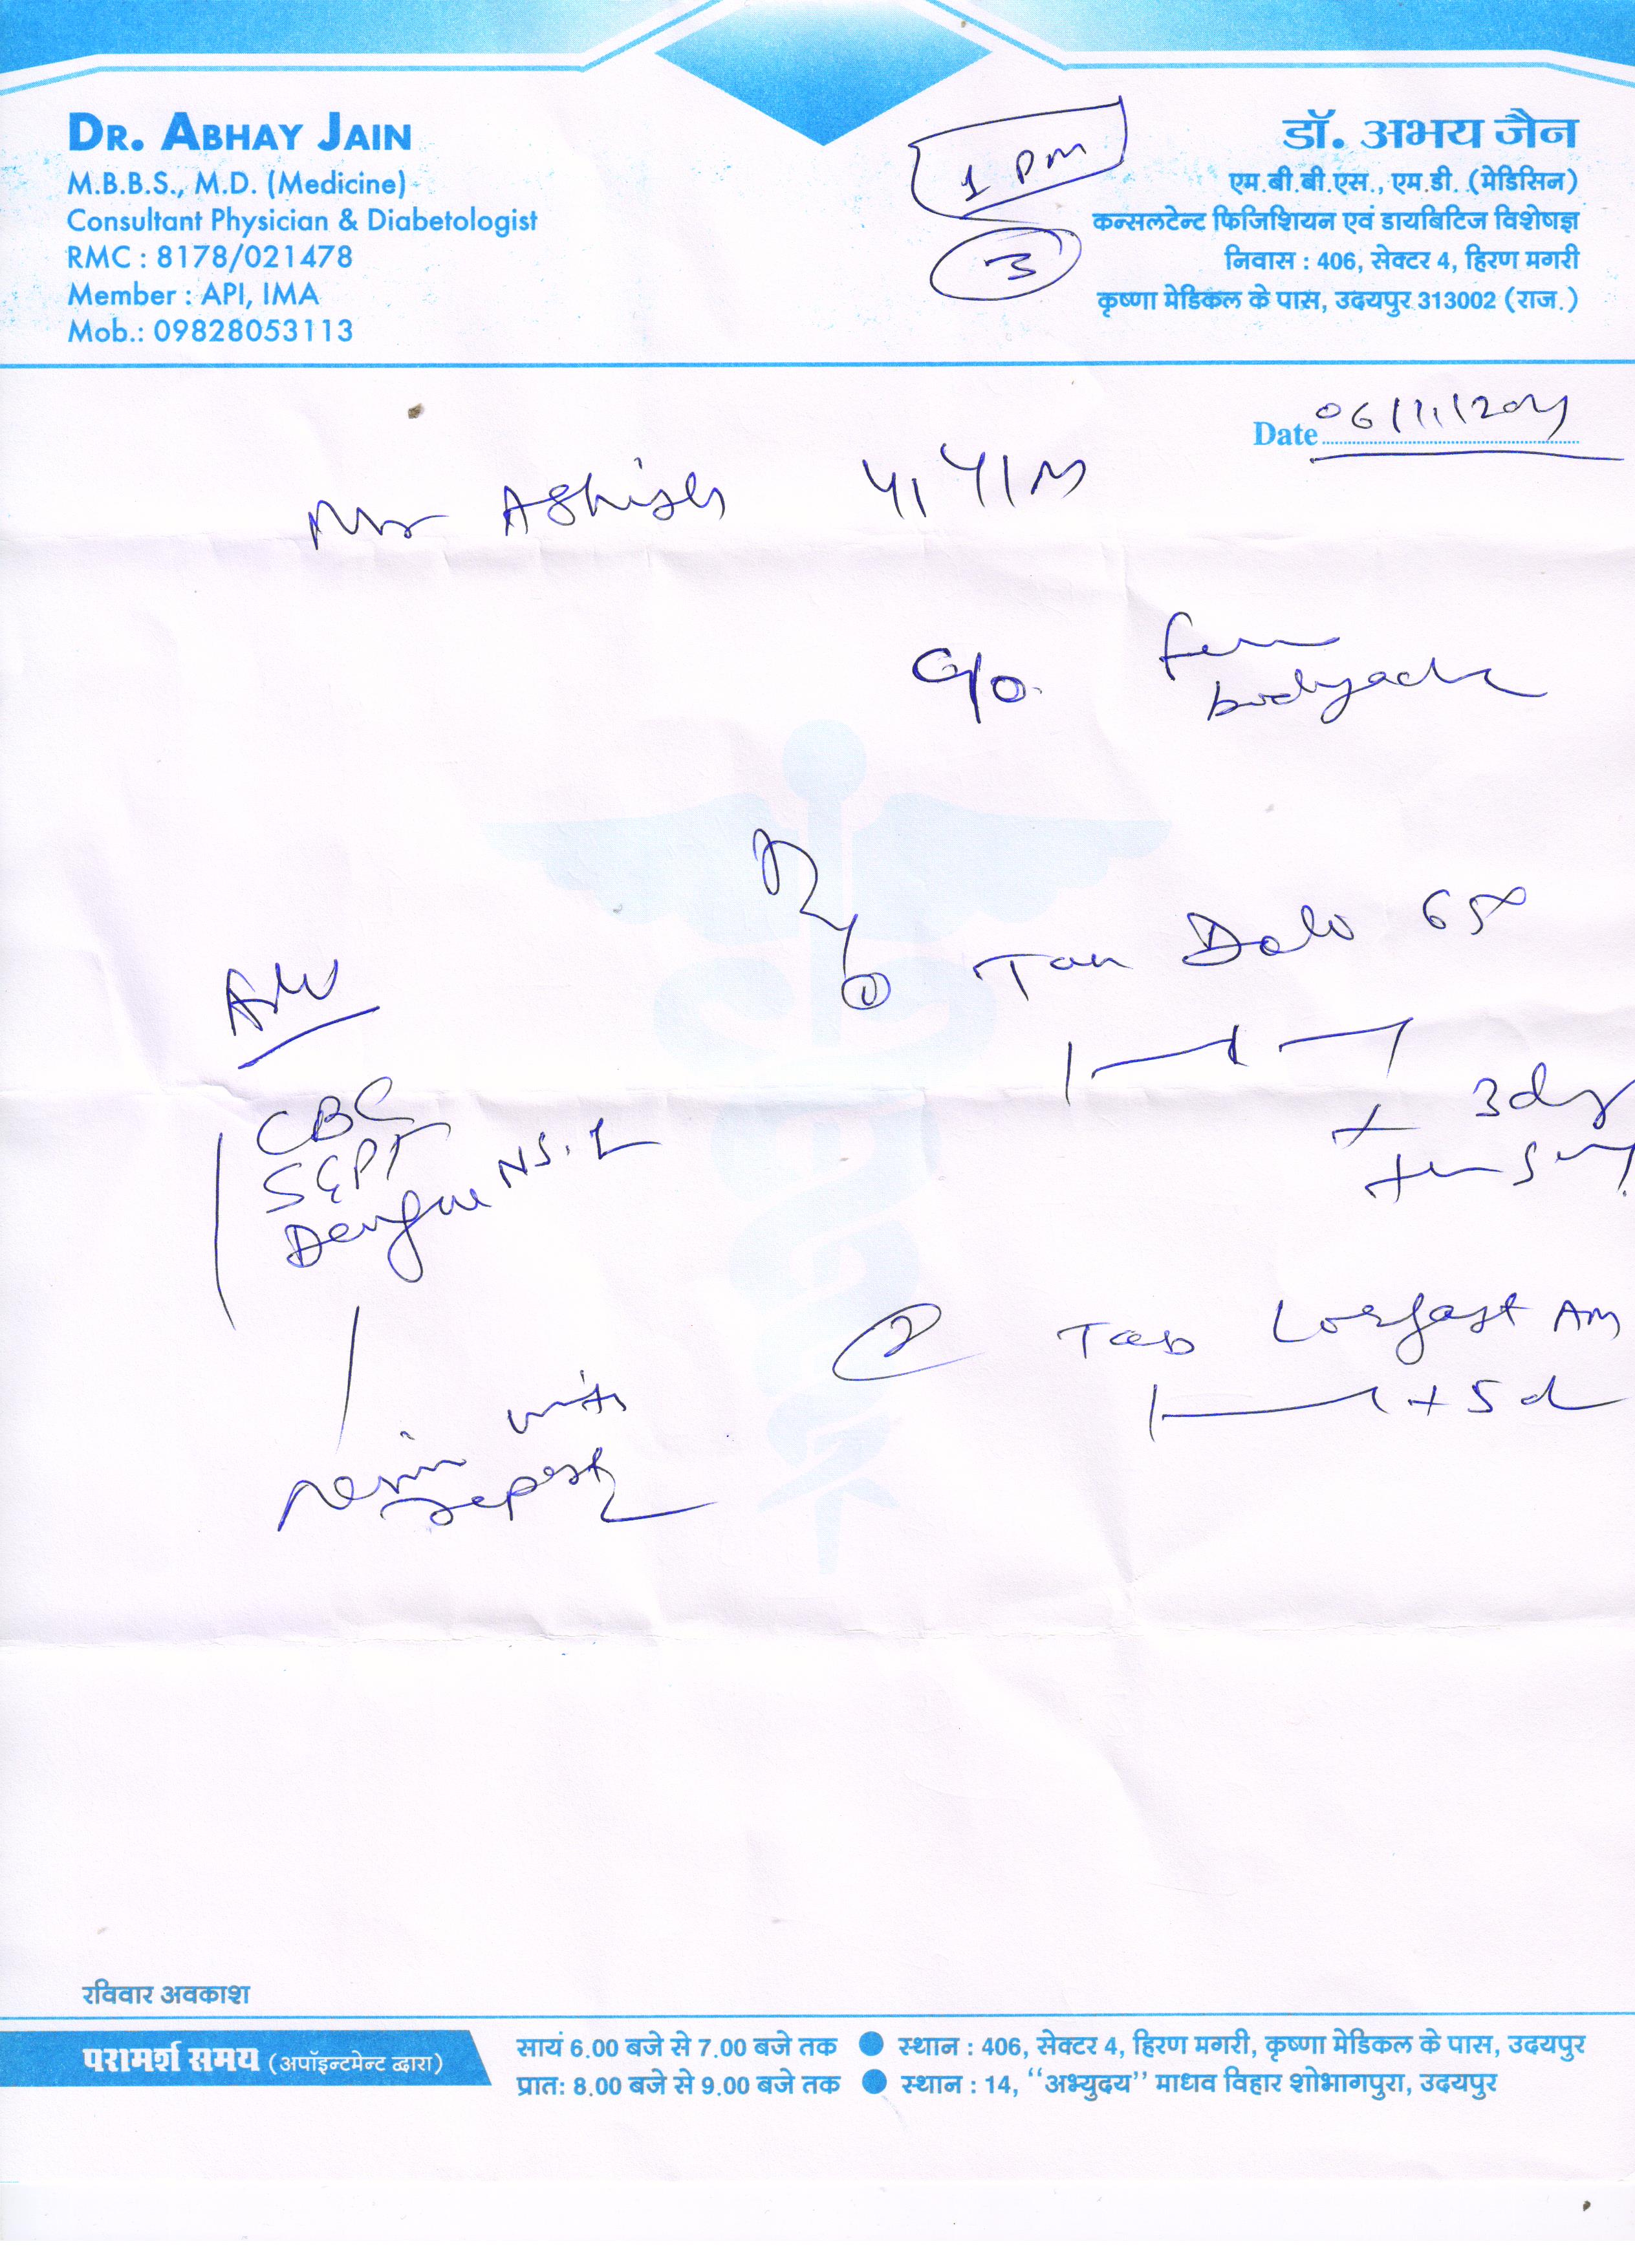 DR. ABHAY JAIN
M.B.B.S., M.D. (Medicine)
Consultant Physician & Diabetologist
RMC : 8178/021478
Member : API, IMA
Mob.: 09828053113
1 PM
3
डॉ. अभय जैन
एम.बी.बी.एस., एम.डी. (मेडिसिन)
कन्सलटेन्ट फिजिशियन एवं डायबिटिज विशेषज्ञ
निवास : 406, सेक्टर 4, हिरण मगरी
कृष्णा मेडिकल के पास, उदयपुर 313002 (राज.)
Date 06/11/
Mr Ashish 41 Y/M
C/o. fever
bodyache
Rx
① Tab Dolo 650
3 dy
Adv
CBC
SGPT
Dengue NS.1
② Tab Lorfast AM
5 d
with
report
रविवार अवकाश
परामर्श समय (अपॉइन्टमेन्ट द्वारा)
सायं 6.00 बजे से 7.00 बजे तक ● स्थान : 406, सेक्टर 4, हिरण मगरी, कृष्णा मेडिकल के पास, उदयपुर
प्रातः 8.00 बजे से 9.00 बजे तक ● स्थान : 14, ‘‘अभ्युदय’’ माधव विहार शोभागपुरा, उदयपुर